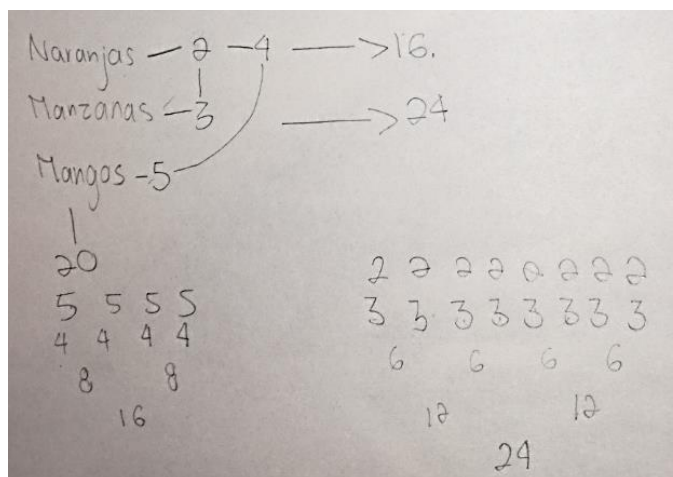 Naranjas — 2 — 4 ——> 16.
Manzanas — 3 ——> 24
Mangos - 5
20
5 5 5 5
4 4 4 4
8 8
16
2 2 2 2 2 2 2 2
3 3 3 3 3 3 3 3
6 6 6 6
12 12
24